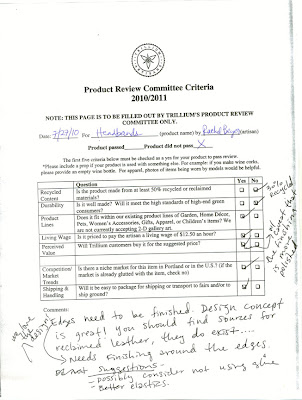 Product Review Committee Criteria
2010/2011
NOTE: THIS PAGE IS TO BE FILLED OUT BY TRILLIUM'S PRODUCT REVIEW
COMMITTEE ONLY.
Date: 7/27/10 For Headbands (product name) by Rachel (artisan)
Product passed Product did not pass X
The first five criteria below must be checked as a yes for your product to pass review.
*Please include a prop if your product is used with something else. For example: if you make wine corks,
please provide an empty wine bottle. For apparel, photos of items being worn by models would be helpful.
Question Yes No
Recycled Content Is the product made from at least 50% recycled or reclaimed materials?
Durability Is it well made? Will it meet the high standards of high-end green consumers?
Product Lines Does it fit within our existing product lines of Garden, Home Décor, Pets, Women's Accessories, Gifts, Apparel, or Children's items? We are not currently accepting 2-D gallery art.
Living Wage Is it priced to pay the artisan a living wage of $12.50 an hour?
Perceived Value Will Trillium customers buy it for the suggested price?
Competition/ Market Trends Is there a niche market for this item in Portland or in the U.S.? (if the market is already glutted with the item, check no)
Shipping & Handling Will it be easy to package for shipping or transport to fairs and/or to ship ground?
50% recycled
Comments:
we love the design
Edges need to be finished. Design concept
is great! you should find sources for
reclaimed leather, they do exist....
→ Needs finishing around the edges.
suggestions -
- possibly consider not using glue
- Better elastics.